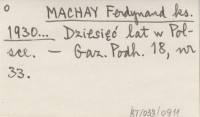 o MACHAY Ferdynand ks.
1930... Dziesięć lat w Pol-
sce. — Gaz. Podh. 18, nr
33.
87/039/0911